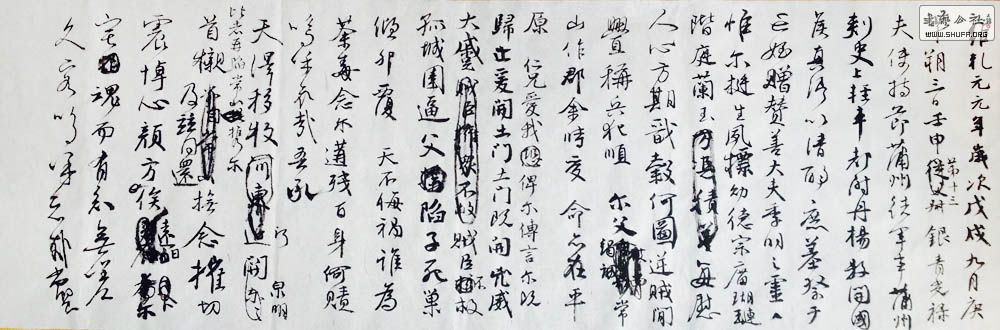 乾元元年歲次戊戌九月庚
朔三日壬申第十三從父叔銀青光祿
夫使持節蒲州諸軍事蒲州
刺史上輕車都尉丹楊縣開國
侯真卿以清酌庶羞祭于
亡姪贈贊善大夫季明之靈
惟尔挺生夙標幼德宗廟瑚璉
階庭蘭玉方憑積善每慰
人心方期戩穀何圖逆賊閒
舋稱兵犯順尔父竭誠常
山作郡余時受命亦在平
原仁兄愛我恐俾尔傳言尔既
歸止爰開土門土門既開凶威
大蹙賊臣擁眾不救賊臣不救
孤城圍逼父陷子死巢
傾卵覆天不悔禍誰為
荼毒念尔遘殘百身何贖
嗚乎哀哉吾承
天澤移牧河東近河關泉明
比者再陷常山携尔
首櫬及茲同還撫念摧切
震悼心顏方俟遠日
宅魂而有知無嗟
久客嗚呼哀哉尚饗
書法公社
WWW.SHUFR.ORG